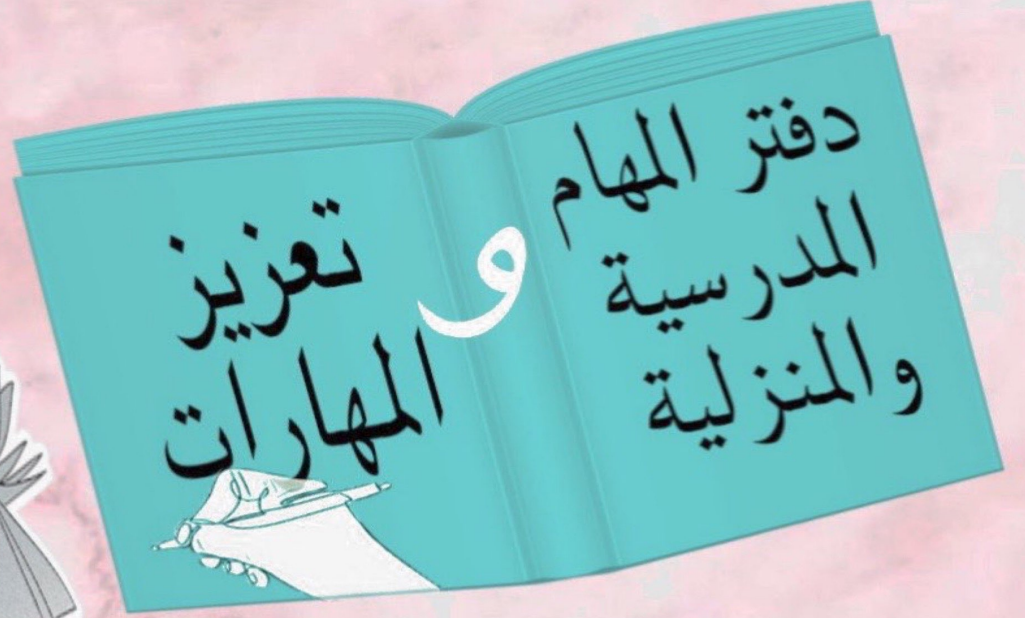 دفتر المهام
المدرسية
والمنزلية
و
تعزيز
المهارات